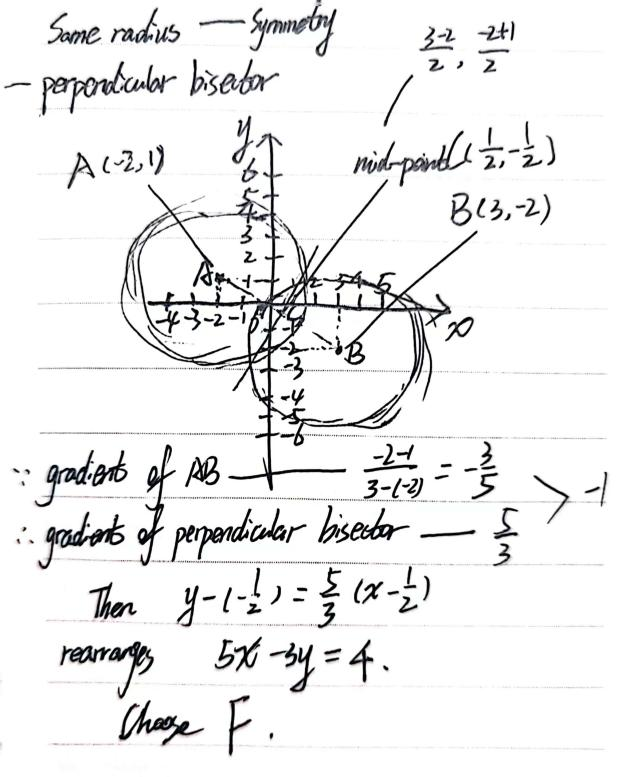 Same radius — Symmetry
— perpendicular bisector
3-2/2, -2+1/2
A(-2,1)
mid-point(1/2,-1/2)
B(3,-2)
y
6
5
4
3
2
1
A
-4 -3 -2 -1 0 2 3 4 5
x
-1
-2
B
-3
-4
-5
-6
∵ gradients of AB — -2-1/3-(-2) = -3/5
> -1
∴ gradients of perpendicular bisector — 5/3
Then y-(-1/2) = 5/3 (x-1/2)
rearranges 5x-3y=4.
Choose F.